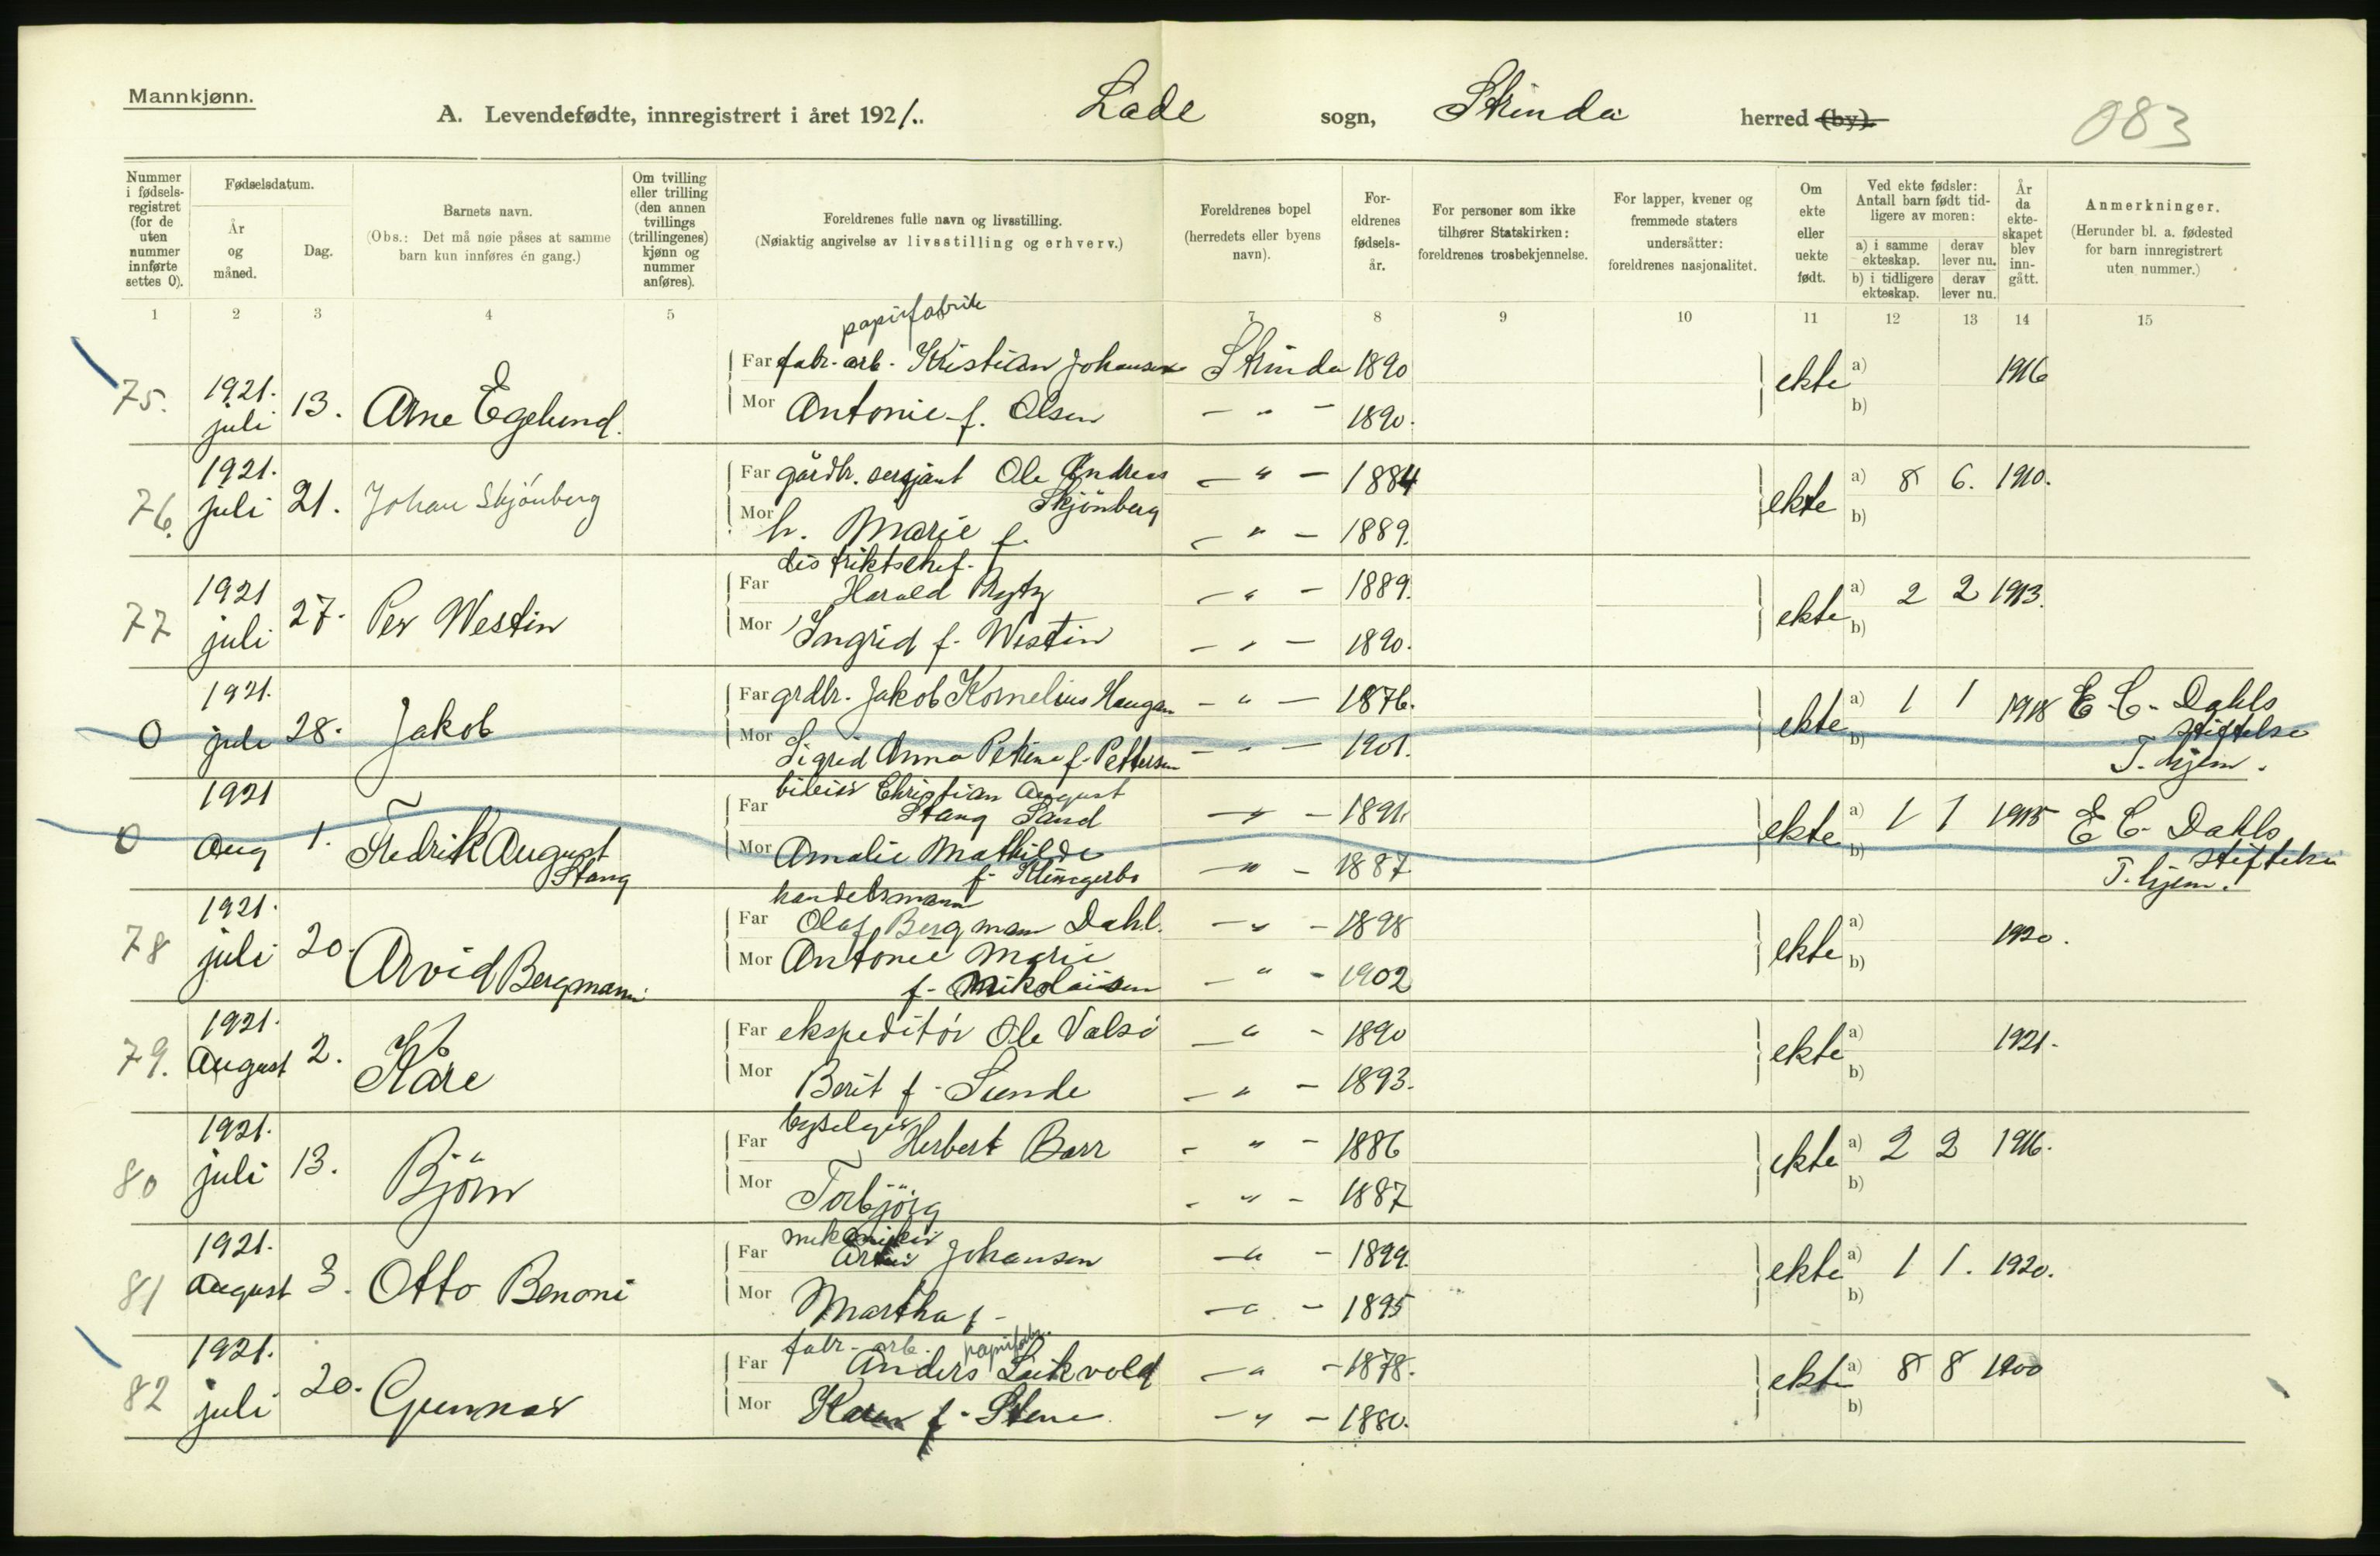 Mannkjønn.
A. Levendefødte, innregistrert i året 1921.. Lade sogn, Strinda herred (by). 083
Nummer i fødsels-registret (for de uten nummer innførte settes 0).
Fødselsdatum.
År og måned.
Dag.
Barnets navn.
(Obs.: Det må nøie påses at samme barn kun innføres én gang.)
Om tvilling eller trilling (den annen tvillings (trillingenes) kjønn og nummer anføres).
Foreldrenes fulle navn og livsstilling.
(Nøiaktig angivelse av livsstilling og erhverv.)
Foreldrenes bopel (herredets eller byens navn).
For-eldrenes fødsels-år.
For personer som ikke tilhører Statskirken: foreldrenes trosbekjennelse.
For lapper, kvener og fremmede staters undersåtter: foreldrenes nasjonalitet.
Om ekte eller uekte født.
Ved ekte fødsler: Antall barn født tid-ligere av moren:
a) i samme ekteskap. derav lever nu.
b) i tidligere ekteskap. derav lever nu.
År da ekte-skapet blev inn-gått.
Anmerkninger.
(Herunder bl. a. fødested for barn innregistrert uten nummer.)
1 2 3 4 5 7 8 9 10 11 12 13 14 15
papirfabrik
75. 1921. juli 13. Arne Egelund.
Far fabr. arb. Kristian Johansen Strinda 1890 ekte a) 1916
Mor Antonie f. Olsen - " - 1890. b)
76. 1921. juli 21. Johan Skjönberg
Far gårdbr. sersjant Ole Andreas Skjönberg - " - 1884 ekte a) 8 6. 1910.
Mor h. Marie f. - " - 1889. b)
77 1921 juli 27. Per Westin
distriktschef.
Far Harald - " - 1889. ekte a) 2 2 1913.
Mor Ingrid f. Westin - " - 1890. b)
0 1921. juli 28. Jakob
Far grdbr. Jakob Kornelius Haugan - " - 1876. ekte a) 1 1 1918 E. C. Dahls stiftelse
Mor Sigrid Anna Petrine f. Pettersen - " - 1901. b) T. hjem.
0 1921 Aug 1. Fredrik August Stang
Far Christian August Stang Sand - " - 1891. ekte a) 1 1 1915 E C. Dahls stiftelse
Mor Amalie Mathilde f. - " - 1887. b) T. hjem.
78 1921. juli 20. Arvid Bergmann
handelsmann
Far Olaf Bergman Dahl. - " - 1898 ekte a) 1920.
Mor Antonie Marie f. Nikolaisen - " - 1902 b)
79. 1921. August 2. Kåre
Far ekspeditör Ole Valsö - " - 1890 ekte a) 1921.
Mor Berit f. Sunde - " - 1893. b)
80 1921. juli 13. Björn
Far Herbert Barr - " - 1886 ekte a) 2 2 1916.
Mor Torbjörg - " - 1887 b)
81 1921. August 3. Otto Benoni
mekaniker
Far Johansen - " - 1899. ekte a) 1 1. 1920.
Mor Martha f - - " - 1895 b)
82 1921. juli 20. Gunnar
fabr. arb. papirfabr.
Far Anders - " - 1878. ekte a) 8 8 1900
Mor Karen f. Stene. - " - 1880. b)